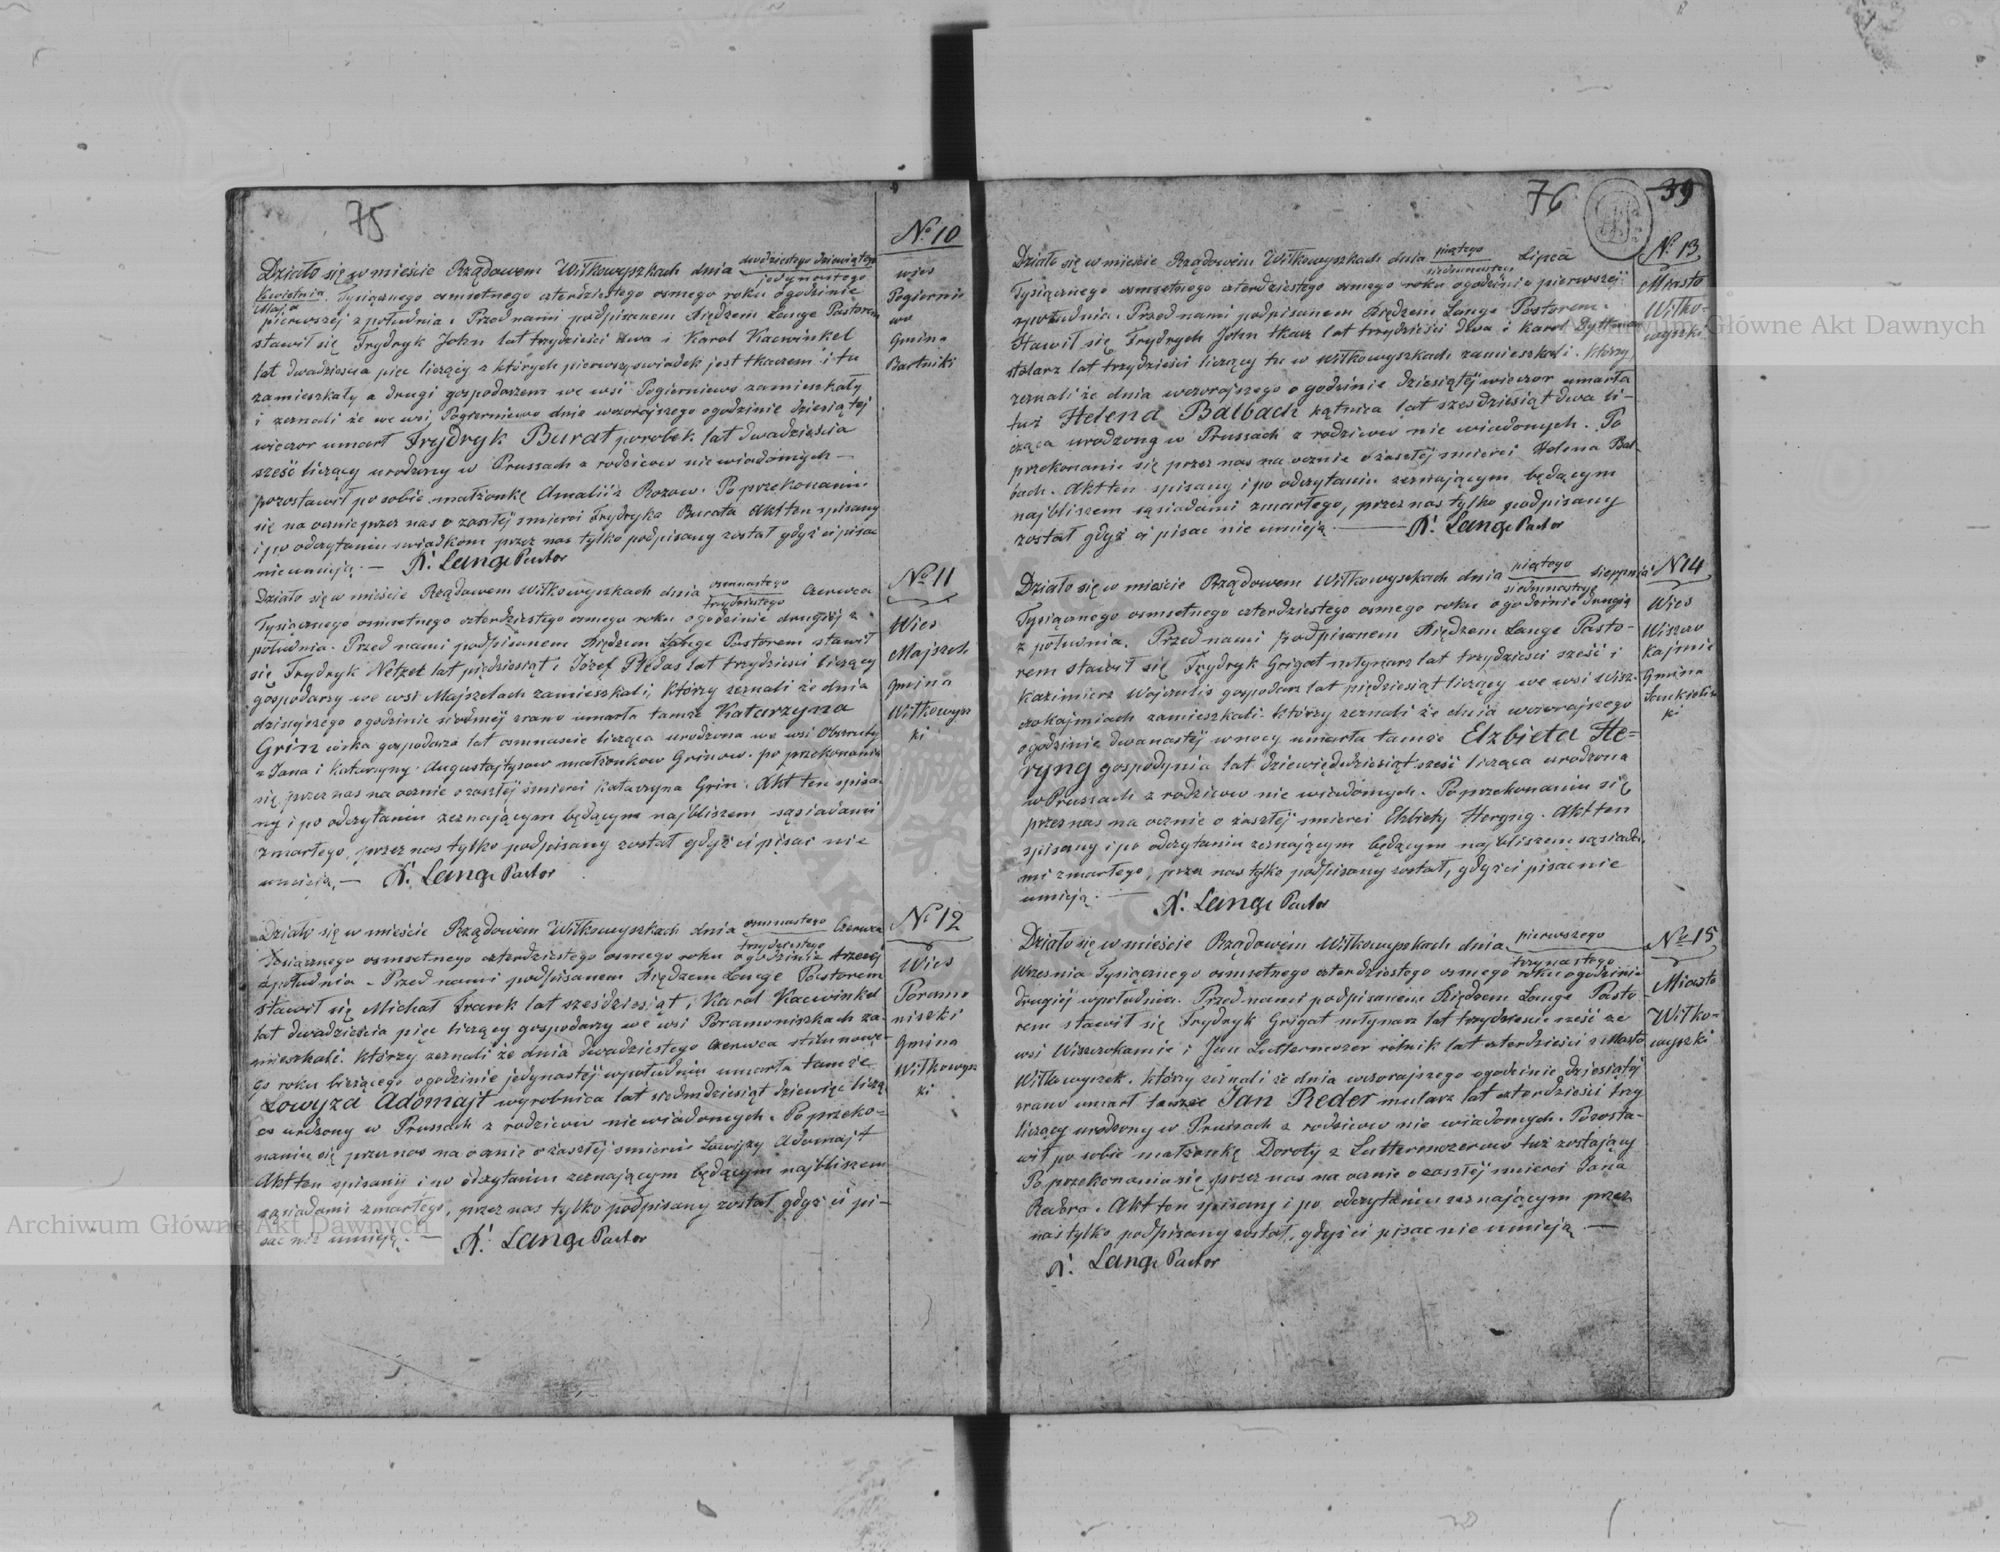 75
No 10
wies
Pogiernie
wo
Gmina
Bartniki
Działo się w mieście Rządowem Wiłkowyszkach dnia dwudziestego dziewiątego
jedynastego
Kwietnia
Maja
Tysiącznego osmsetnego czterdziestego osmego roku o godzinie
pierwszéj z południa. Przed nami podpisanem Xiędzem Lange Pastorem
stawił się Frydryk John lat trzydzieści dwa i Karol Kacwinkel
lat dwadzieścia pięc liczący z których pierwszy swiadek jest tkaczem i tu
zamieszkały a drugi gospodarzem we wsi Pogierniewo zamieszkały
i zeznali że we wsi Pogierniewo dnia wczorajszego o godzinie dziesiątej
wieczor umarł Frydryk Burat parobek lat dwadzieścia
sześć liczący urodzony w Prussach z rodzicow niewiadomych —
pozostawił po sobie małżonkę Amalii z Rozow. Po przekonaniu
się na ocznie przez nas o zaszłéj smierci Frydryka Burata Akt ten spisany
i po odczytaniu swiadkom przez nas tylko podpisany został gdyż ci pisac
nie umieją. — X. Lange Pastor
No 11
Wies
Majszeh
Gmina
Wiłkowysz
ki
Działo się w mieście Rządowem Wiłkowyszkach dnia osmnastego Czerwca
trzydziestego
Tysiącznego osmsetnego czterdziestego osmego roku o godzinie drugiéj z
południa. Przed nami podpisanem Xiędzem Lange Pastorem stawił
się Frydryk Netzel lat piędziesiąt i Józef lat trzydzieści liczący
gospodarzy we wsi Majszelach zamieszkali, którzy zeznali że dnia
dzisiejszego o godzinie siodméj zrana umarła tamże Katarzyna
Grin córka gospodarza lat osmnascie licząca urodzona we wsi Obszruty
z Jana i Katarzyny Augustajtysow małżonkow Grinow. po przekonaniu
się przez nas na ocznie o zaszłéj śmierci Katarzyna Grin. Akt ten spisa-
ny i po odczytaniu zeznającym będącym najbliszem sąsiadami
zmarłego, przez nas tylko podpisany został gdyż ci pisac nie
umieją. — X. Lange Pastor
No 12
Wies
Poramo
niszki
Gmina
Wiłkowysz
ki
Działo się w mieście Rządowem Wiłkowyszkach dnia osmnastego Czerwca
trzydziestego
Tysiącznego osmsetnego czterdziestego osmego roku o godzinie trzeciej
z południa. Przed nami podpisanem Xiędzem Lange Pastorem
stawił się Michał Frank lat szesdziesiąt, Karol Kacwinkel
lat dwadzieścia pięc liczący gospodarzy we wsi Poramoniszkach za-
mieszkali. którzy zeznali że dnia dwadziestego Czerwca stilu nowe-
go roku bieżącego o godzinie jedynastéj wpołudniu umarła tamże
Lowyza Adomajt wyrobnica lat siedmdziesiąt dziewięc liczą-
ca urdzony w Prussach z rodzicow niewiadomych. Po przeko-
naniu się przez nas na ocznie o zaszłéj smierci Lowizy Adomajt
Akt ten spisanij i po odczytaniu zeznającym będącym najbliszem
sąsiadami zmarłego, przez nas tylko podpisany został gdyż ci pi-
sac nie umieją. — X. Lange Pastor
76
39
No 13
Miasto
Wiłko-
wyszki
Działo się w mieście Rządowém Wiłkowyszkach dnia piątego Lipca
siedmnastego
Tysiącznego osmsetnego czterdziestego osmego roku o godzinie pierwszéj
z południa. Przed nami podpisanem Xiędzem Lange Pastorem.
Stawił się Frydrych John tkacz lat trzydzieści dwa i Karol
stolarz lat trzydzieści liczący tu w Wiłkowyszkach zamieszkali. którzy
zeznali że dnia wczorajszego o godzinie dziesiątéj wieczor umarła
tuż Helena Balbach kątnica lat szesdziesiąt dwa li-
cząca urodzoną w Prussach z rodzicow nie wiadomych. Po
przekonanie się przez nas na ocznie o zaszłéj smierci Helena Bal-
bach. Akt ten spisany i po odczytaniu zeznającym będącym
najbliszem sąsiadami zmarłego, przez nas tylko podpisany
został gdyż ci pisac nie umieją — X. Lange Pastor
N 14
Wies
Wiszczo
kajmie
Gmina
ki
Działo się w mieście Rządowem Wiłkowyszkach dnia piątego sierpnia
siedmnastego
Tysiącznego osmsetnego czterdziestego osmego roku o godzinie drugiéj
z południa. Przed nami podpisanem Xiędzem Lange Pasto-
rem stawił się Frydryk Grigat młynarz lat trzydzieści sześć i
Kazimierz Wojczulis gospodarz lat piędziesiąt liczący we wsi Wisz-
czokajmiach zamieszkali. którzy zeznali że dnia wczorajszego
o godzinie dwanastéj w nocy umarła tamże Elzbieta He-
ryng gospodynia lat dziewięddziesiąt sześć licząca urodzona
w Prussach z rodzicow nie wiadomych. Po przekonaniu się
przez nas na ocznie o zaszłéj smierci Elzbiety Heryng. Akt ten
spisany i po odczytaniu zeznającym będącym najbliszem sąsiada-
mi zmarłego, przez nas tylko podpisany został, gdyż ci pisac nie
umieją. — X. Lange Pastor
No 15
Miasto
Wiłko-
wyszki
Działo się w mieście Rządowém Wiłkowyszkach dnia pierwszego
trzynastego
Wrzesnia Tysiącznego osmsetnego czterdziestego osmego roku o godzinie
drugiéj w południa. Przed nami podpisanem Xiędzem Lange Pasto
rem stawił się Frydryk Grigat młynarz lat trzydzieście sześć ze
wsi Wiszczokamie i Jan Luttermozer rolnik lat czterdzieści z Miasta
Wiłkowyszek. którzy zeznali że dnia wczorajszego o godzinie dziesiątéj
zrana umarł tamże Jan Reder mularz lat czterdzieści trzy
liczący urodzony w Prussach z rodzicow nie wiadomych. Pozosta-
wił po sobie małżonkę Doroty z Luttermozerow tuż zostający
Po przekonania się przez nas na ocznie o zaszłéj smierci Jana
Redera. Akt ten spisany i po odczytaniu zeznającym przez
nas tylko podpisany został, gdyż ci pisac nie umieją. —
X. Lange Pastor
Archiwum Główne Akt Dawnych
Archiwum Główne Akt Dawnych